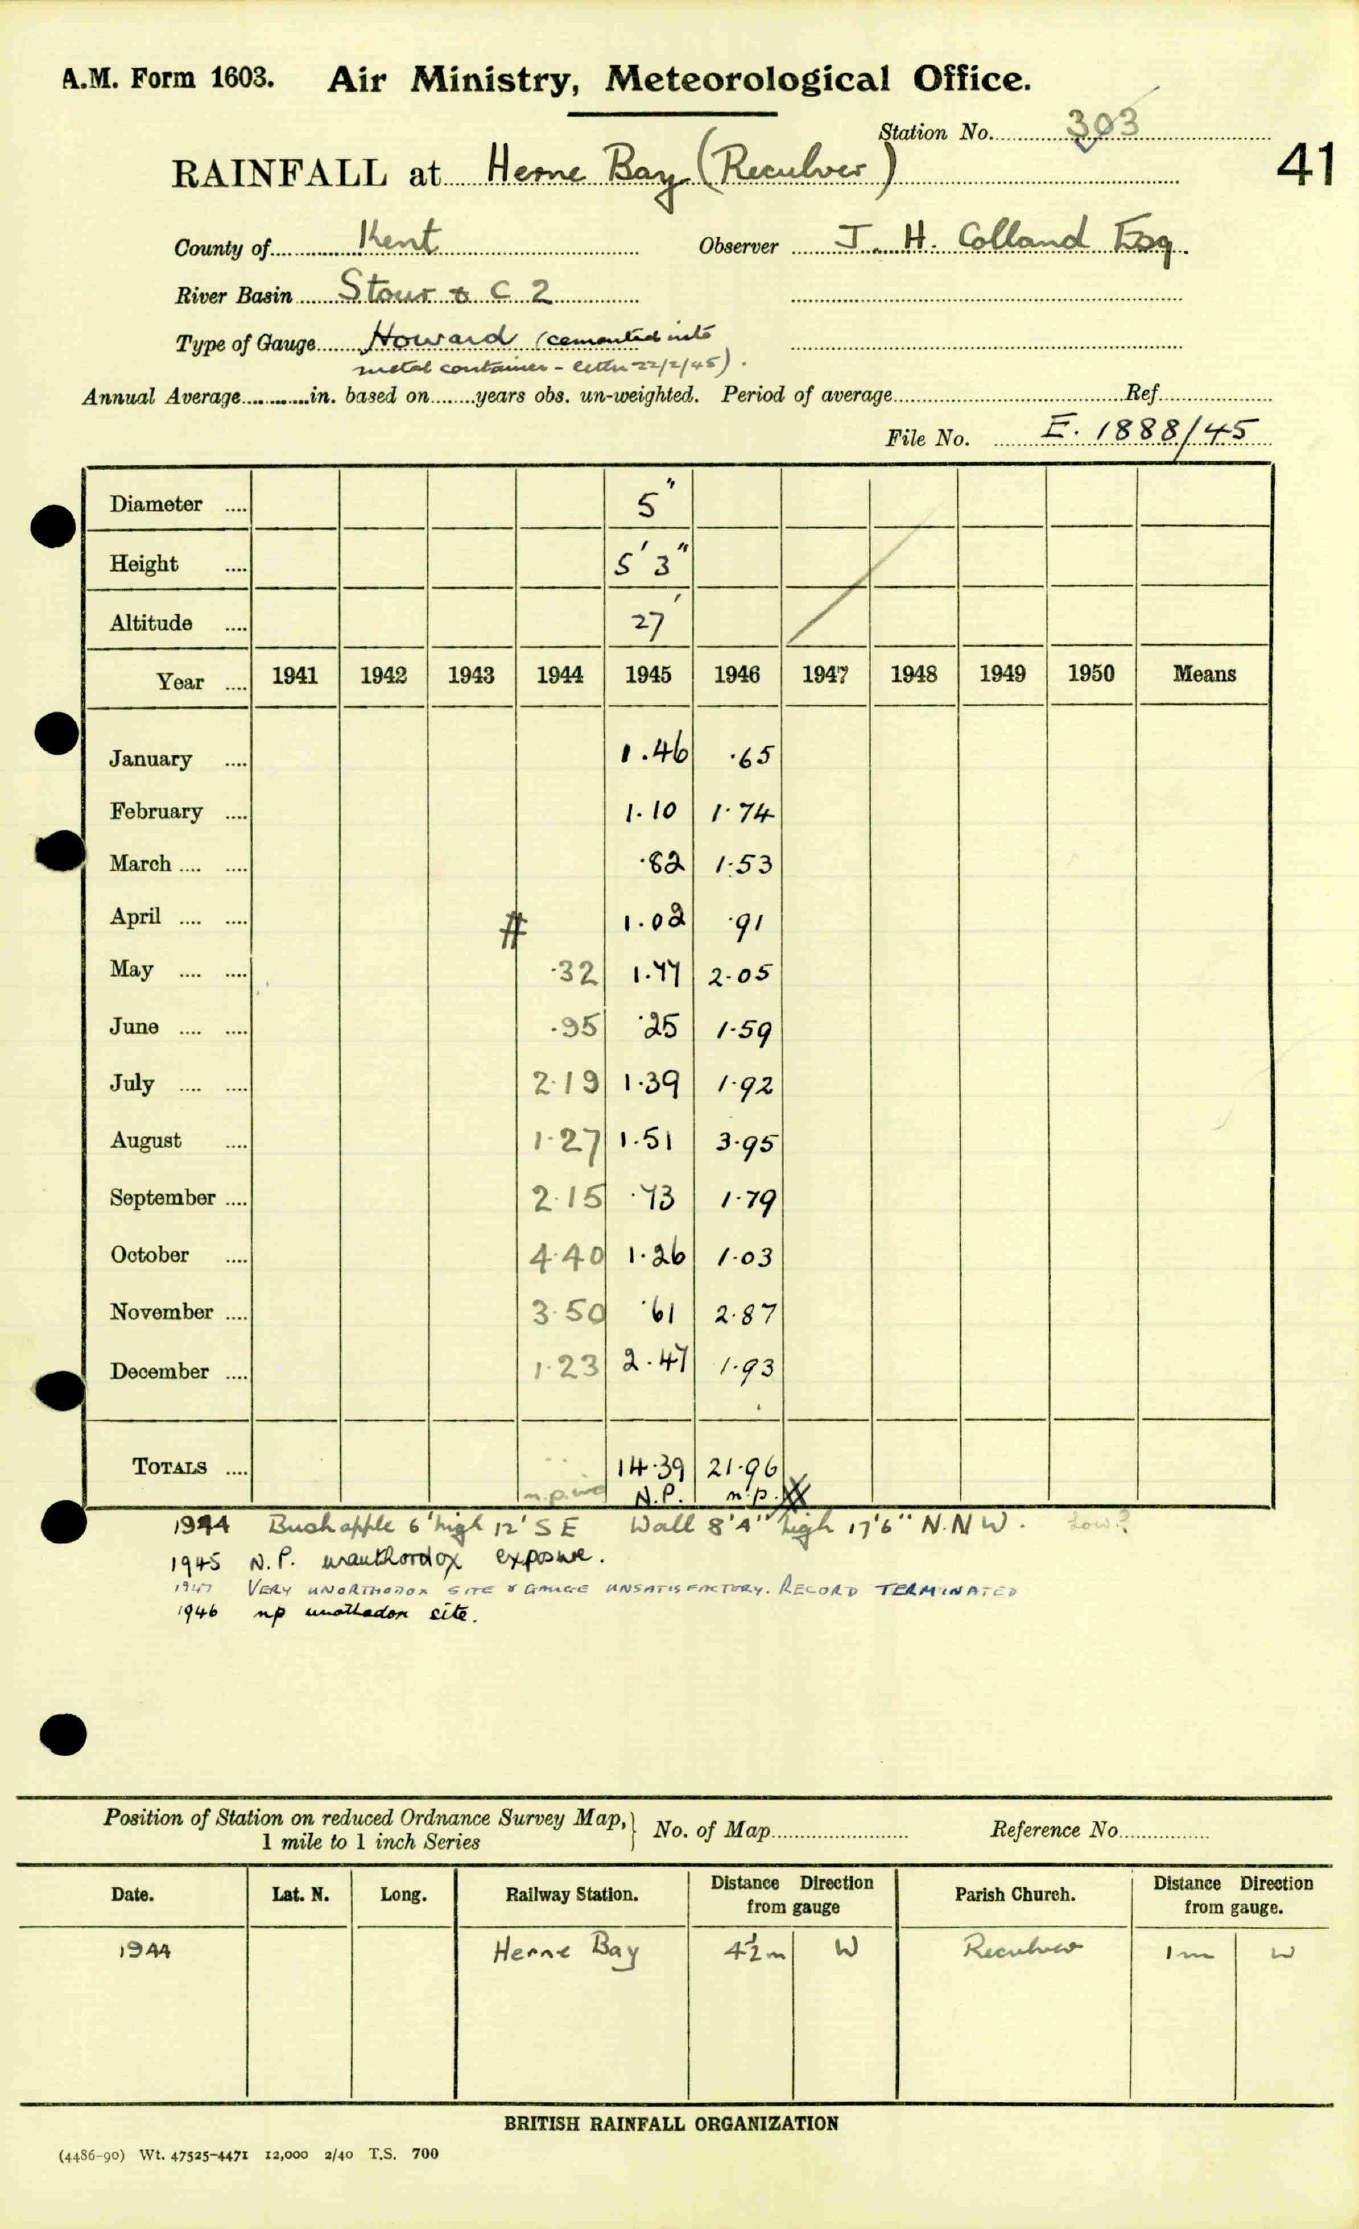 A.M. Form 1603. Air Ministry, Meteorological Office.
Station No. 303
41
RAINFALL at Herne Bay (Reculver)
County of Kent Observer J. H. Colland Esq.
River Basin Stour & C 2
Type of Gauge Howard (cemented into
metal container - letter 22/2/45).
Annual Average in. based on years obs. un-weighted. Period of average Ref
File No. E. 1888/45
Diameter 5"
Height 5' 3"
Altitude 27'
Year 1941 1942 1943 1944 1945 1946 1947 1948 1949 1950 Means
January 1.46 .65
February 1.10 1.74
March .82 1.53
April # 1.02 .91
May .32 1.77 2.05
June .95 .25 1.59
July 2.19 1.39 1.92
August 1.27 1.51 3.95
September 2.15 .73 1.79
October 4.40 1.26 1.03
November 3.50 .61 2.87
December 1.23 2.47 1.93
TOTALS 14.39 21.96
n.p. N.P. n.p.
1944 Bush apple 6' high 12' S E Wall 8'4" high 17'6" N.N.W. Low?
1945 N.P. unauthordox exposure.
1947 VERY UNORTHODOX SITE & GAUGE UNSATISFACTORY. RECORD TERMINATED
1946 np site.
Position of Station on reduced Ordnance Survey Map, 1 mile to 1 inch Series No. of Map Reference No
Date. Lat. N. Long. Railway Station. Distance Direction from gauge Parish Church. Distance Direction from gauge.
1944 Herne Bay 4½ m W Reculver 1 m W
BRITISH RAINFALL ORGANIZATION
(4486-90) Wt. 47525-4471 12,000 2/40 T.S. 700